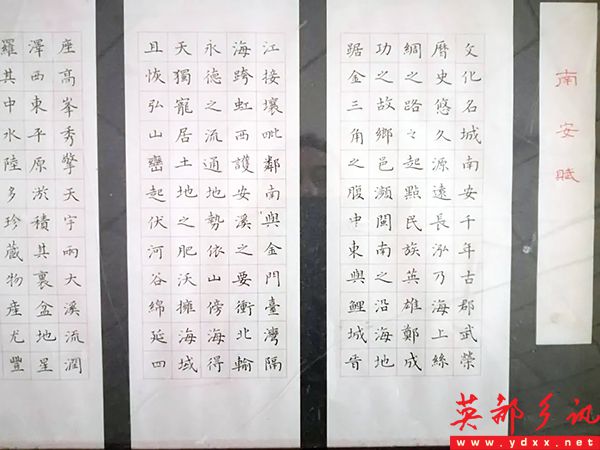 南安賦
文化名城南安千年古郡武榮
歷史悠久源遠長泓乃海上絲
綢之路之起點民族英雄鄭成
功之故鄉邑瀕閩南之沿海地
踞金三角之腹中東與鯉城晉
江接壤毗鄰南與金門臺灣隔
海跨虹西護安溪之要衝北輸
永德之流通地勢依山傍海得
天獨寵居土地之肥沃擁海域
且恢弘山巒起伏河谷綿延四
座高峯秀擎天宇兩大溪流潤
澤西東平原淤積其裏盆地星
羅其中水陸多珍藏物産尤豐
英都乡讯
www.ydxx.net